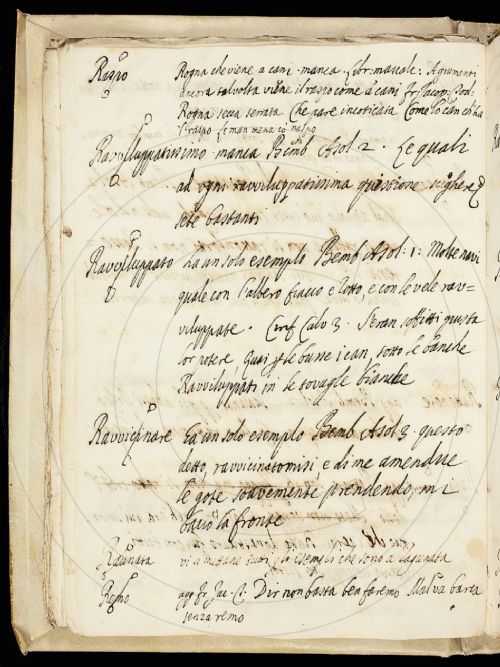 Raspo Rogna che viene a cani manca. libr: mascalc: A giumenti
ancora talvolta viene il raspo come a cani fr: Jacop: Tod:
Rogna secca serrata Che pare incoticata Come lo can ch'ha
Ravviluppatissimo manca Bemb Asol 2. Le quali
ad ogni ravviluppatissima quistione sciogliere
sete bastanti
Ravviluppato ha un solo esempio Bemb Asol: 1: Molte navi
quale con l'albero fiacco e rotto, e con le vele rav=
viluppate. Ciriff Calv 3.
lor potere Quasi le busse i can, sotto le banche
Ravviluppati in le tovaglie bianche
Ravvicinare Ha un solo esempio Bemb Asol 3. questo
detto, ravvicinatomisi e di me amendue
le gote soavemente prendendo, mi
bacio la fronte
Raunata vi si mettano fuori gli esempli che sono a ragunata
Remo agg. fr. Jac. T. Dir non basta ben faremo Mal va barca
senza remo